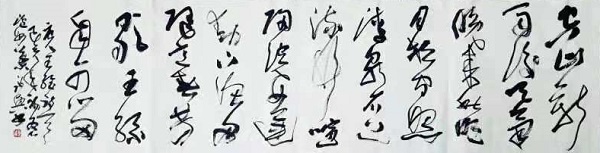 空山新
雨后天气
晚来秋明
月松间照
清泉石上
流竹喧
归浣女莲
动下渔舟
随意春芳
歇王孙
自可留
唐人王维诗一首